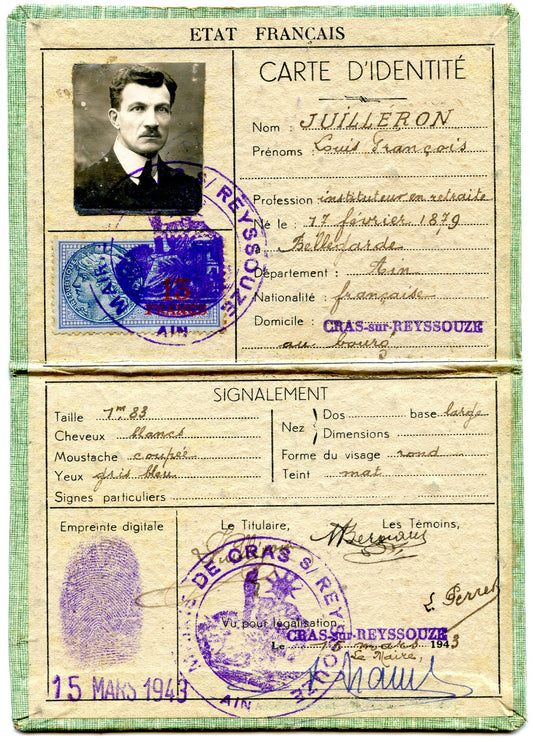 ETAT FRANÇAIS
CARTE D'IDENTITÉ
Nom : JUILLERON
Prénoms : Louis François
Profession instituteur en retraite
Né le : 17 février 1879
à Bellegarde
Département : Ain
Nationalité : française
Domicile : CRAS-sur-REYSSOUZE
au bourg
13
FRANCS
MAIRIE S/ REYSSOUZE
AIN
SIGNALEMENT
Taille 1m 83
Cheveux blancs
Moustache coupée
Yeux gris bleu
Signes particuliers
Nez
Dos base large
Dimensions
Forme du visage rond
Teint mat
Empreinte digitale
Le Titulaire,
Les Témoins,
L. Perret
MAIRIE DE CRAS S/ REYSSOUZE
AIN
Vu pour légalisation
CRAS-sur-REYSSOUZE
Le 15 mars 1943
Le Maire,
15 MARS 1943